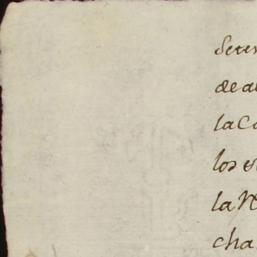 Sete
de a
la C
los
la N
cha